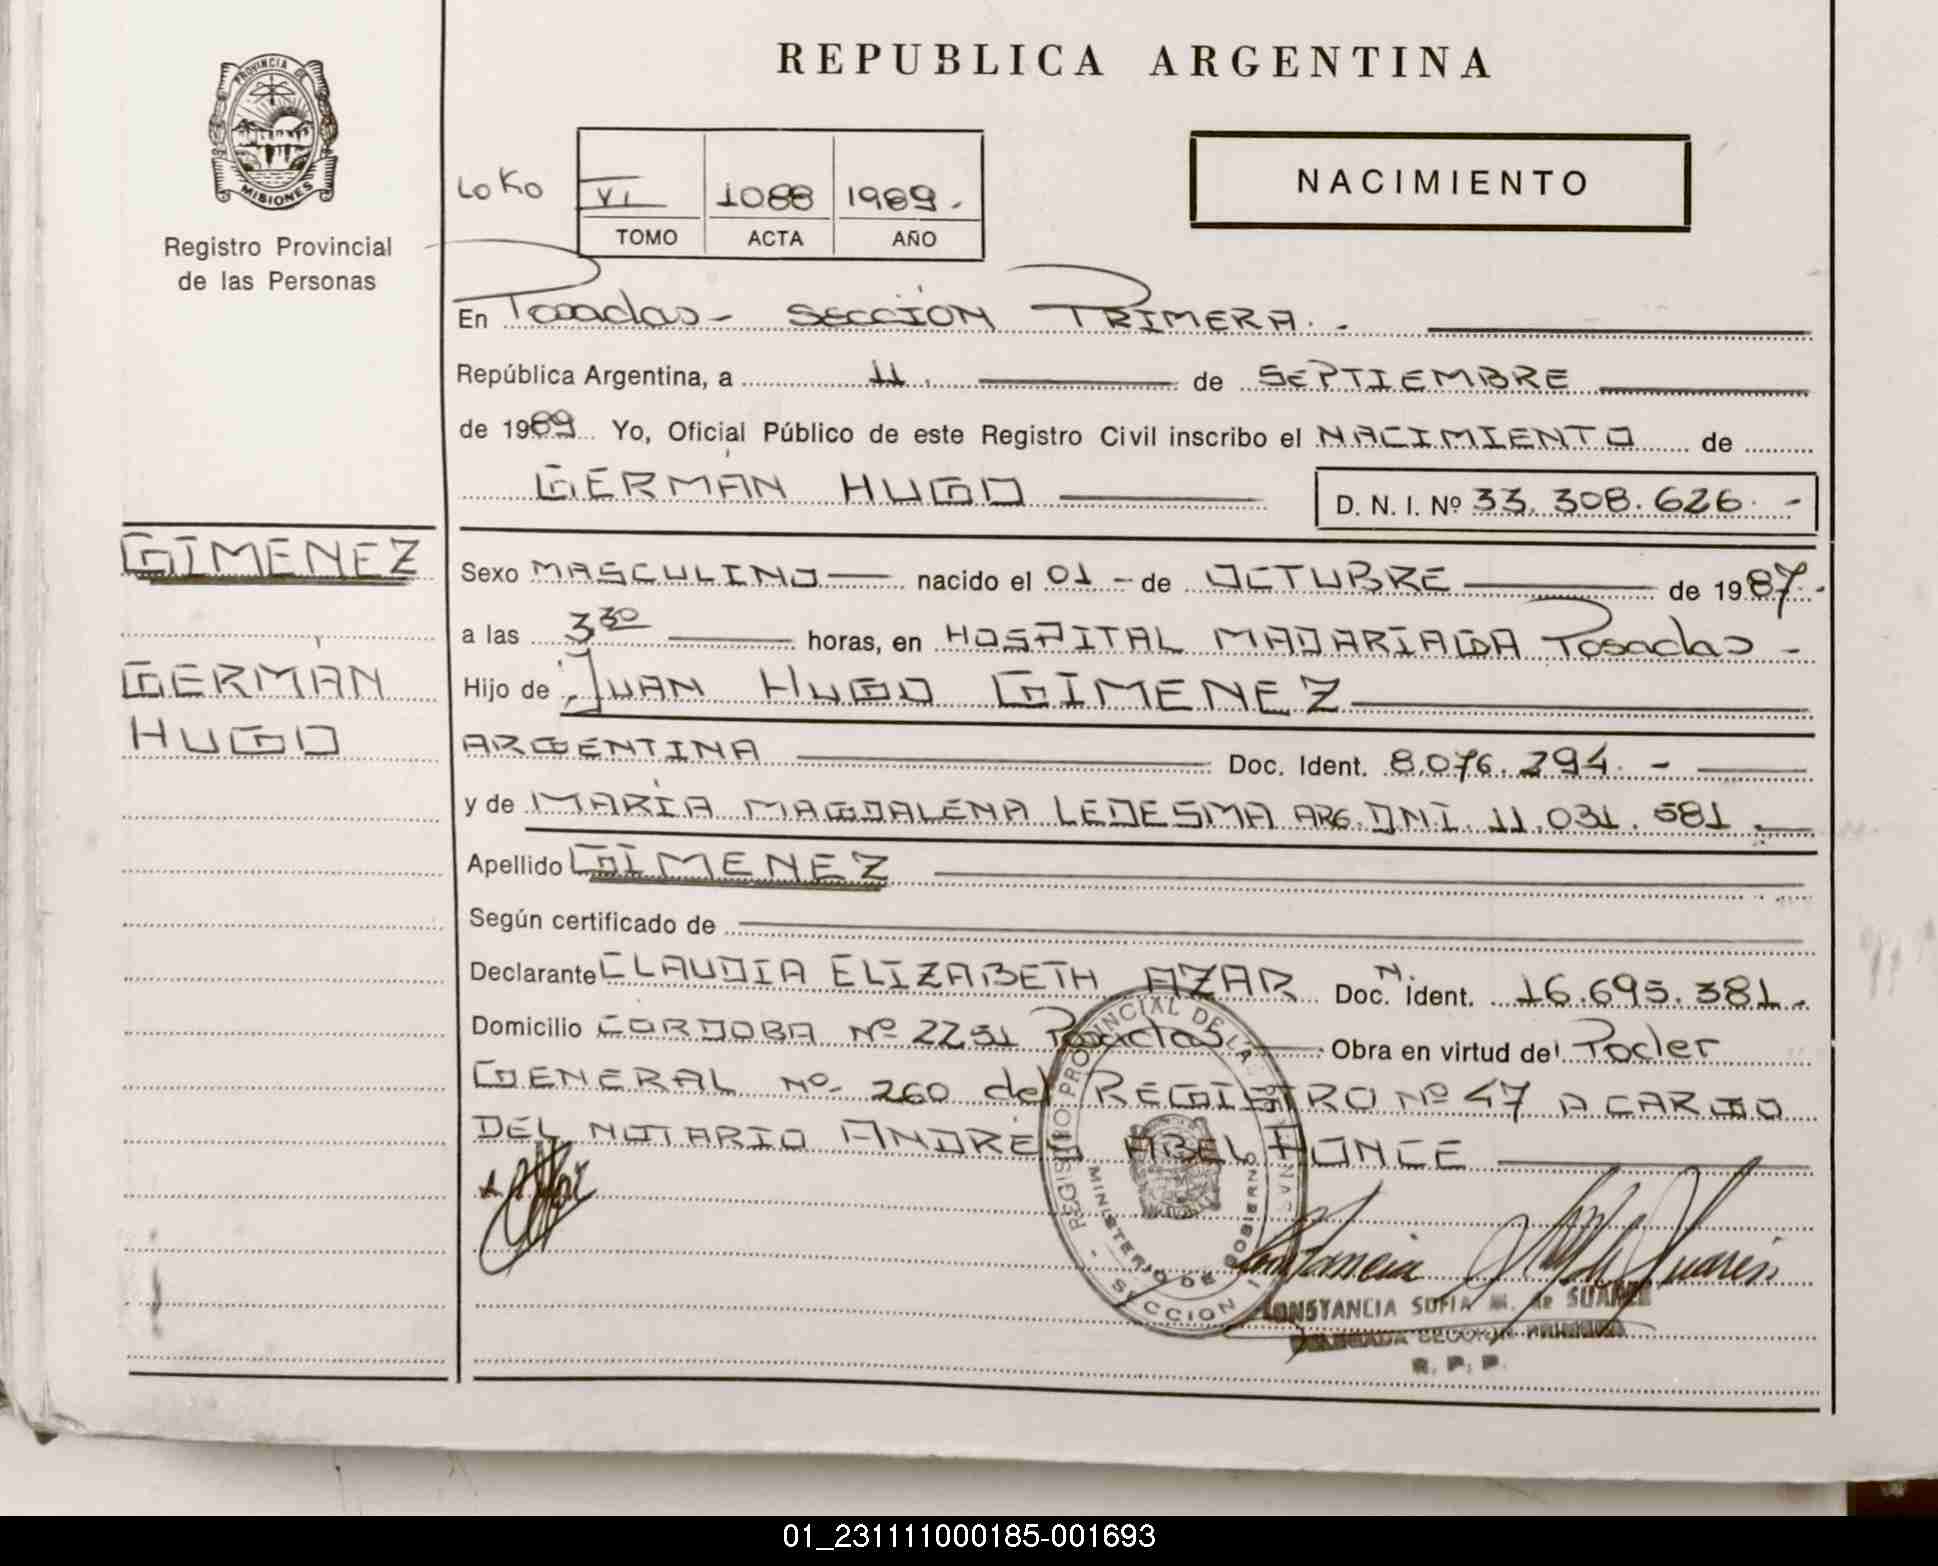 REPUBLICA ARGENTINA
PROVINCIA DE
MISIONES
Registro Provincial
de las Personas
NACIMIENTO
LoKo VI 1088 1989.
TOMO ACTA AÑO
En Posadas - SECCIÓN PRIMERA. -
República Argentina, a 11. de SEPTIEMBRE
de 1989 Yo, Oficial Público de este Registro Civil inscribo el NACIMIENTO de
GERMÁN HUGO D. N. I. Nº 33.308.626. -
GIMENEZ
GERMÁN
HUGO
Sexo MASCULINO nacido el 01 - de OCTUBRE de 1987.-
a las 3 30 horas, en HOSPITAL MADARIAGA Posadas -
Hijo de JUAN HUGO GIMENEZ
ARGENTINA Doc. Ident. 8.076.294. -
y de MARÍA MAGDALENA LEDESMA ARG. DNI. 11.031.581.
Apellido GIMENEZ
Según certificado de
Declarante CLAUDIA ELIZABETH AZAR Doc. N. Ident. 16.695.381.
Domicilio CORDOBA Nº 2251 Posadas Obra en virtud del Poder
GENERAL Nº 260 del REGISTRO Nº 47 A CARGO
DEL NOTARIO ANDRÉS ABEL PONCE
REGISTRO PROVINCIAL DE LAS PERSONAS
MINISTERIO DE GOBIERNO
SECCION I
Constancia
CONSTANCIA SOFIA M. de SUAREZ
DELEGADA SECCION PRIMERA
R. P. P.
01_231111000185-001693